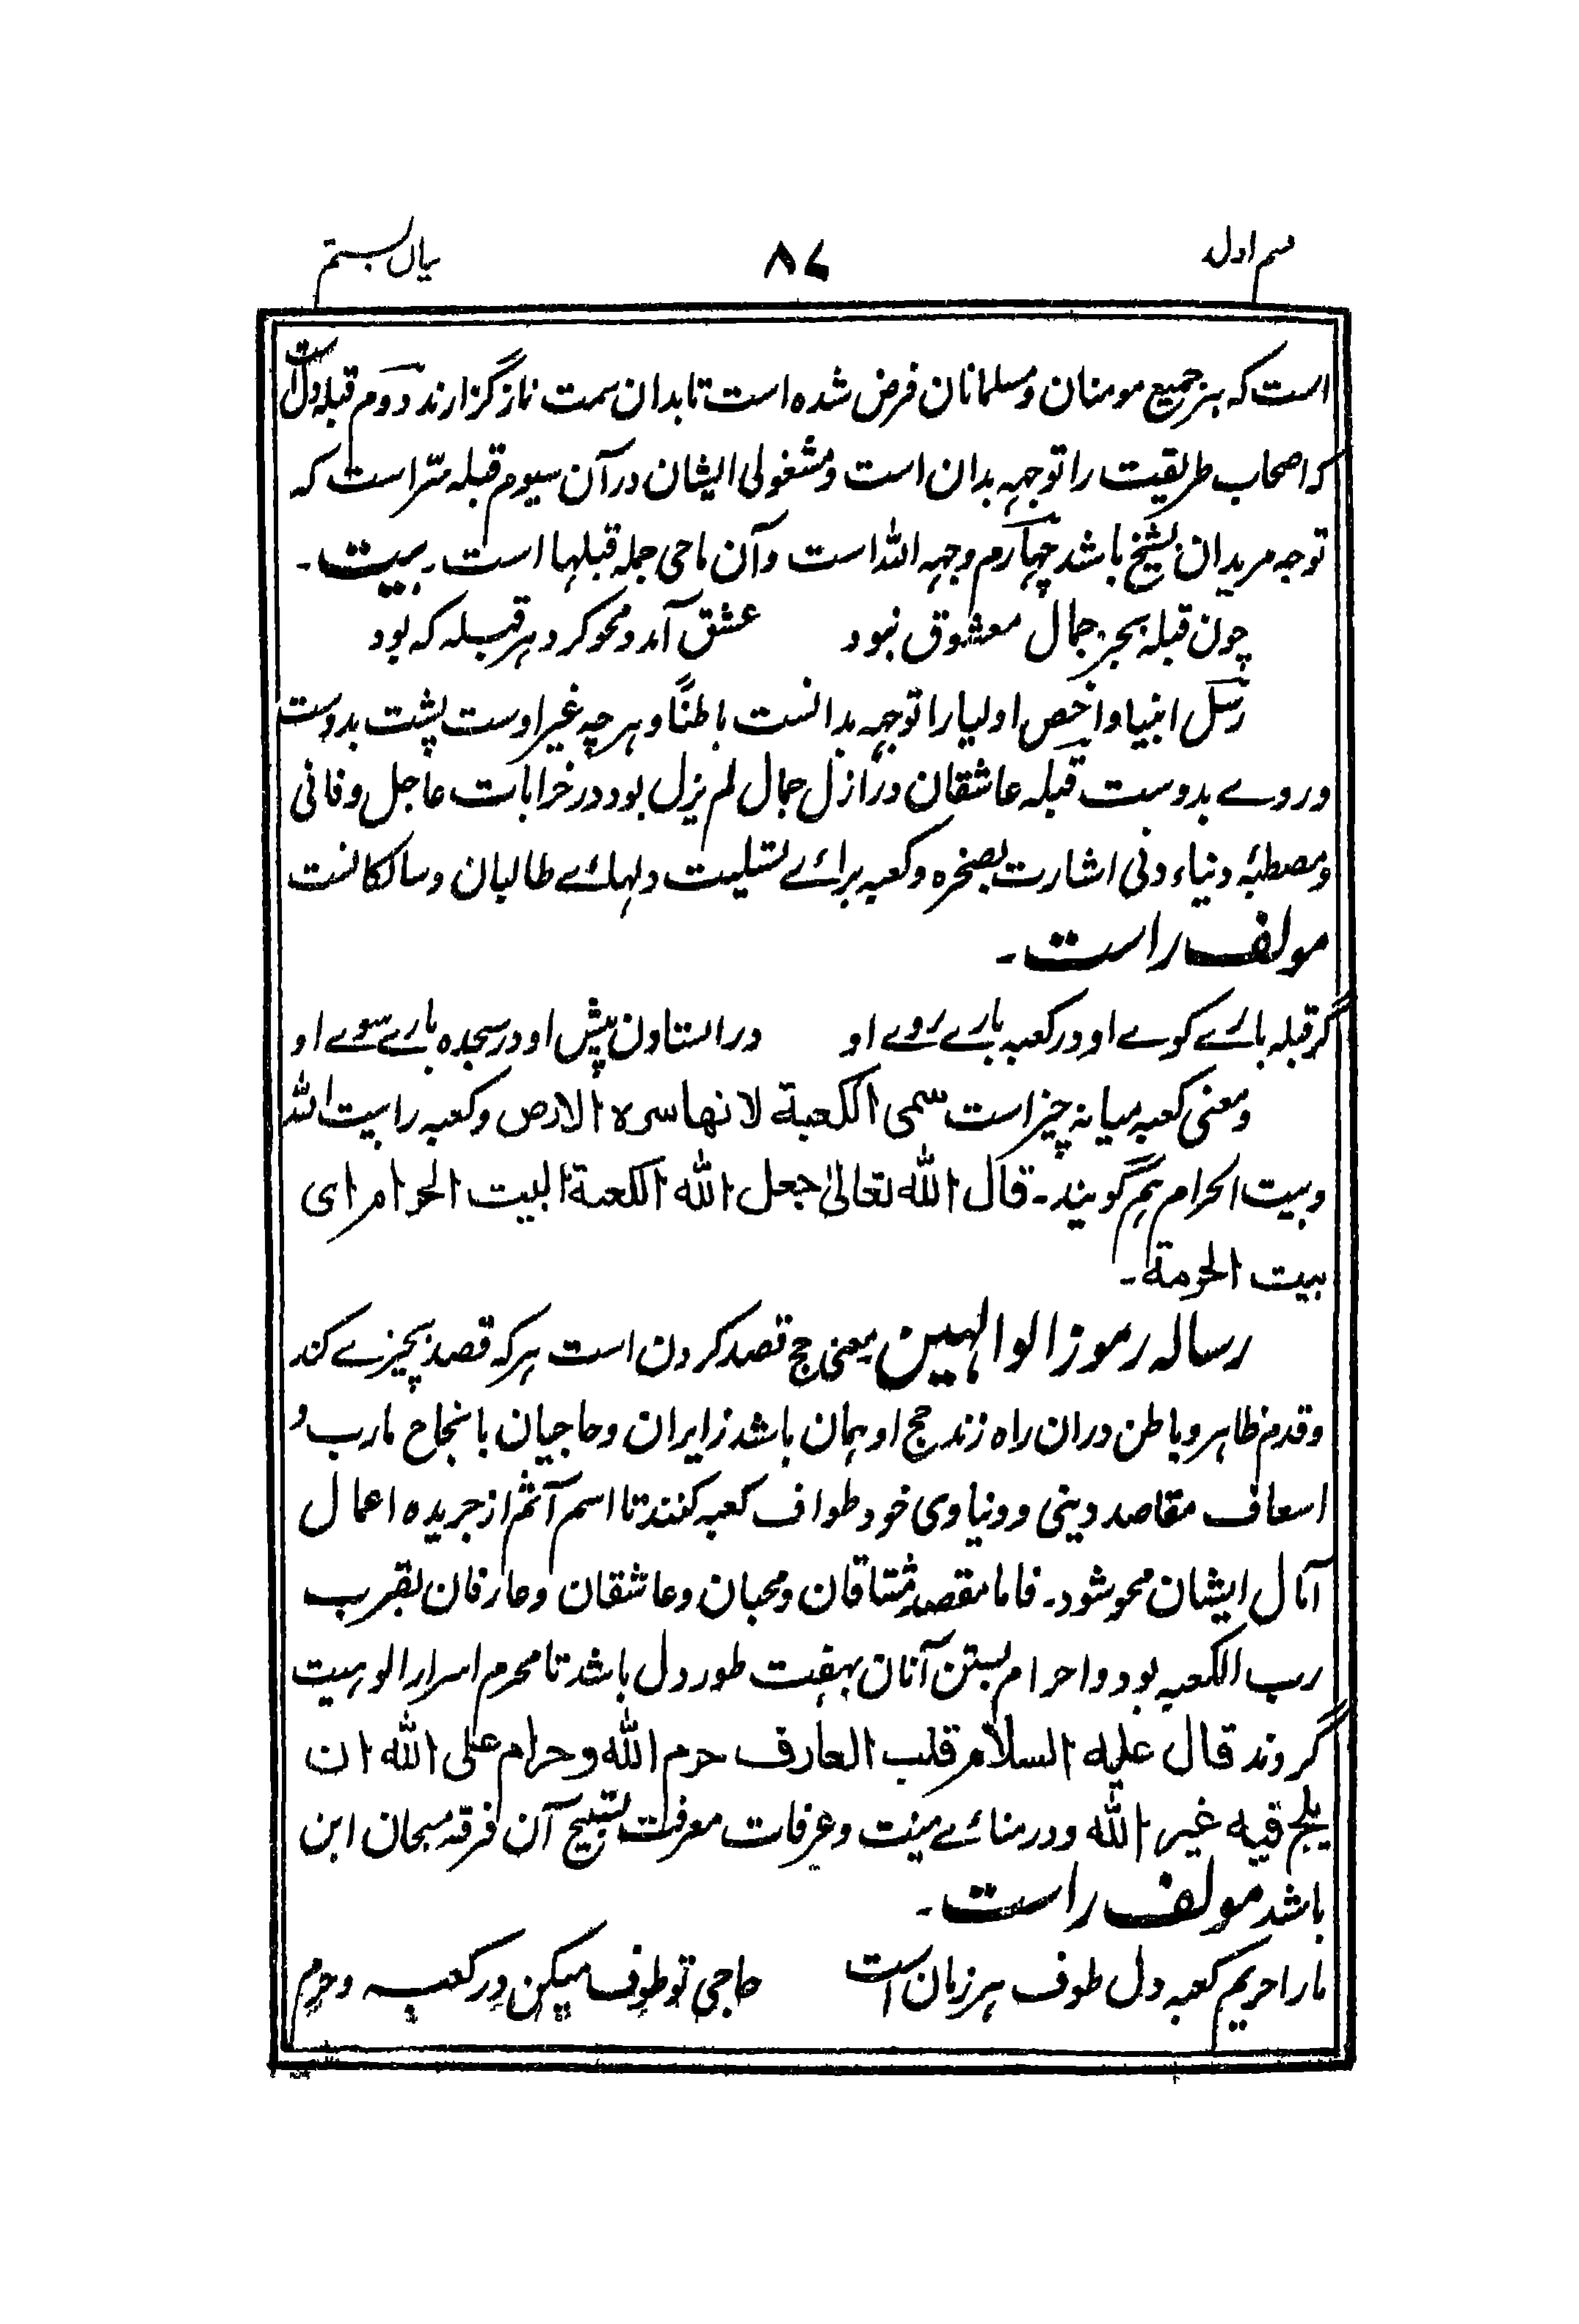 قسم اول
۸۷
بیان بستم
است که بر جمیع مومنان ومسلمانان فرض شده است تا بدان سمت نماز گزارند دوم قبله دل است
که اصحاب طریقت را توجهه بدان است ومشغولی ایشان در آن سیوم قبله سرّ است که
توجه مریدان بشیخ باشد چهارم وجهه الله است وآن ماحی جمله قبلها است ۔ بیت ۔
چون قبله بجز جمال معشوق نبود عشق آمد ومحو کرد هر قبله که بود
رسل انبیا واخص اولیا را توجهه بدانست باطنًا وهر چه غیر اوست پشت بدوست
وروے بدوست قبله عاشقان در ازل جمال لم یزل بود در خرابات عاجل وفانی
ومصطبهٔ دنیاء دنی اشارت بصخره وکعبه برائے تسلیت دلهائے طالبان وسالکانست
مولف راست ۔
گر قبله بارے کوے او ور کعبه بارے روے او در استادن پیش او در سجده بارے سوے او
ومعنی کعبه میانه چیز است سمی الکعبة لانها سره الارض وکعبه را بیت الله
وبیت الحرام هم گویند ۔ قال الله تعالیٰ جعل الله الکعبة البیت الحرام ای
بیت الحرمة ۔
رساله رموز الوالهین یعنی حج قصد کردن است هر که قصد بچیزے کند
وقدم ظاهر وباطن دران راه زند حج او همان باشد زایران وحاجیان بانجاح مارب و
اسعاف مقاصد دینی ودنیاوی خود طواف کعبه کنند تا اسم آثم از جریده اعمال
آمال ایشان محو شود ۔ فاما مقصد مشتاقان ومحبان وعاشقان وعارفان بقرب
رب الکعبه بود واحرام بستن آنان بهفت طور دل باشد تا محرم اسرار الوهیت
گردند قال علیه السلام قلب العارف حرم الله وحرام علی الله ان
یلج فیه غیر الله ودر منائے منیت وعرفات معرفت تسبیح آن فرقه سبحان این
باشد مولف راست ۔
مارا حریم کعبه دل طوف هر زمان است حاجی تو طوف میکن در کعبه وحرم